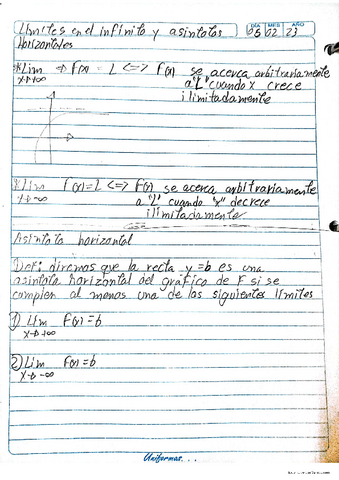 Límites en el infinito y asíntotas
DÍA MES AÑO
05 02 23
Horizontales
*Lim => F(x) = L <=> F(x) se acerca arbitrariamente
x→+∞ a "L" cuando x crece
ilimitadamente
*Lim F(x) = L <=> F(x) se acerca arbitrariamente
x→-∞ a "L" cuando "x" decrece
ilimitadamente
Asíntota horizontal
Def: diremos que la recta y=b es una
asíntota horizontal del gráfico de F si se
complen al menos una de los siguientes límites
1) Lim F(x) = b
x→+∞
2) Lim F(x) = b
x→-∞
Uniformas...